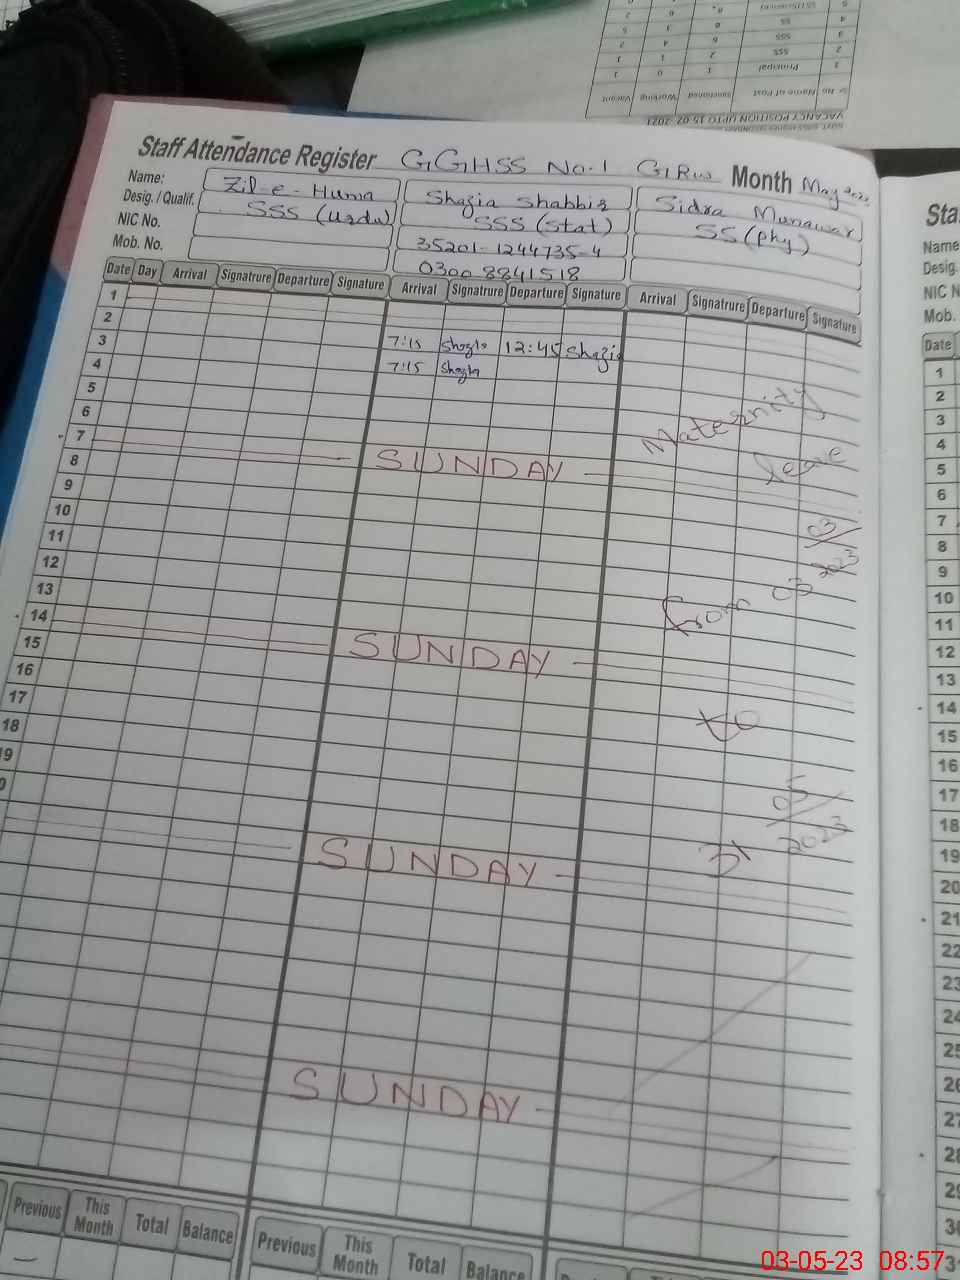 SSS
SS
Sr. No. Name of Post Sanctioned Working Vacant
1 Principal 1 0 1
2 SSS 2 1 1
3 SSS 6 4 2
VACANCY POSITION UPTO 15.02.2021
Staff Attendance Register GGHSS No.1 GRW Month May
Name: Zil-e-Huma Shazia Shabbir Sidra Munawar
Desig. / Qualif. SSS (Urdu) SSS (Stat) SS (Phy)
NIC No. 35201-1244735-4
Mob. No. 0300 8841518
Date Day Arrival Signatrure Departure Signature Arrival Signatrure Departure Signature Arrival Signatrure Departure Signature
1
2
3 7:15 Shazia 12:45 Shazia
4 7:15 Shazia
5
6
7 SUNDAY
8
9
10
11
12
13
14 SUNDAY
15
16
17
18
19
SUNDAY
SUNDAY
Maternity
leave
from 03 03 2023
to
31 05 2023
Previous This Month Total Balance Previous This Month Total Balance
Sta
Name
Desig.
NIC N
Mob.
Date
1
2
3
4
5
6
7
8
9
10
11
12
13
14
15
16
17
18
19
20
21
22
23
24
25
26
27
28
29
03-05-23 08:57